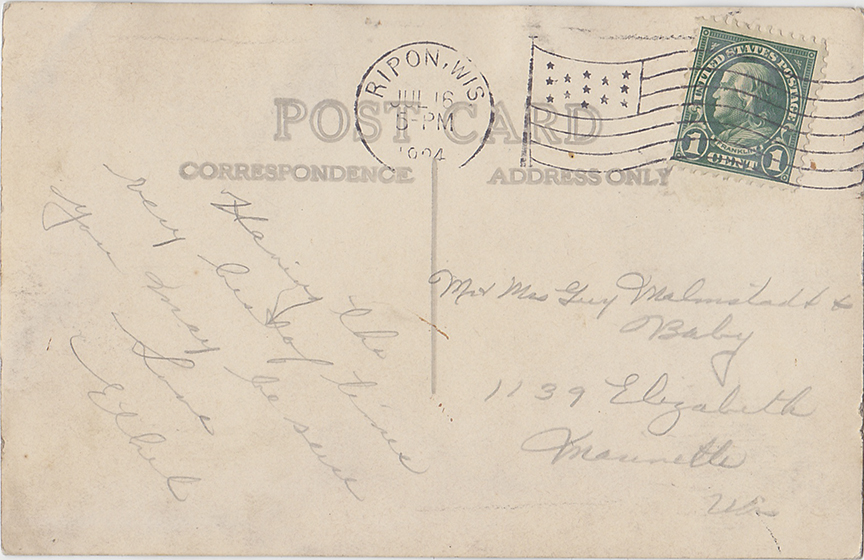 RIPON, WIS
JUL 16
5-PM
1924
UNITED STATES POSTAGE
FRANKLIN
1 CENT 1
POST CARD
CORRESPONDENCE
ADDRESS ONLY
Having the
very best of times
you may be sure
Love
Ethel
Mr & Mrs Guy Malmstadt &
Baby
1139 Elizabeth
Marinette
Wis